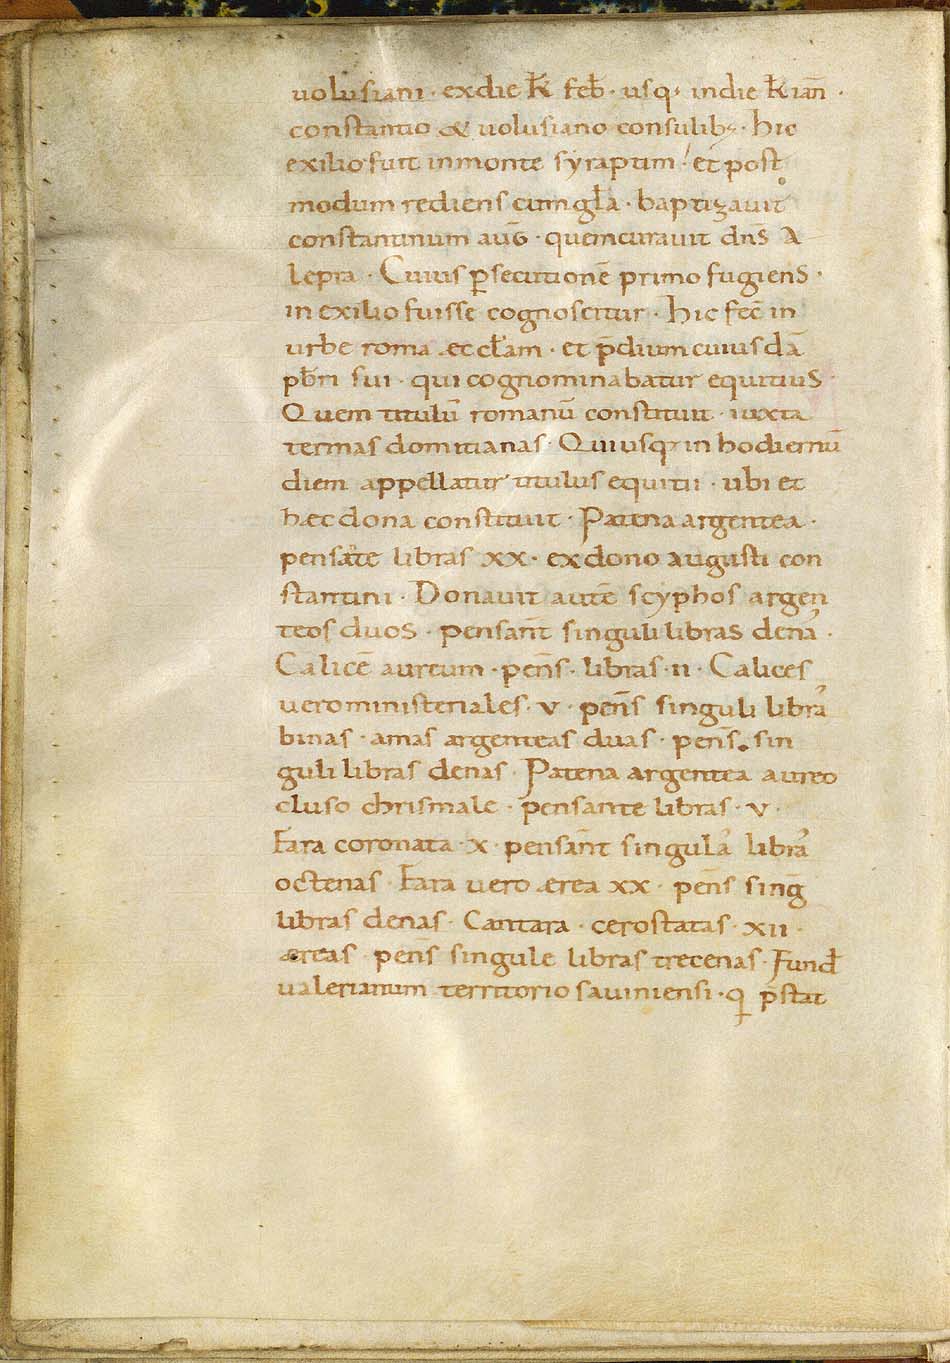 uolusiani · exdie k̄ feb̄ · usq; indie k̄ ian̄ ·
constantio & uolusiano consulib; · hic
exilio fuit inmonte syraptim / et post
modum rediens cum gła · baptizauit
constantinum auḡ · quemcurauit dn̄s A
lepra · Cuius p̱secutionē primo fugiens ·
in exilio fuisse cognoscitur · hic fec̄ in
urbe roma ęccłam · et p̄dium cuiusdā
pb̄ri sui · qui cognominabatur equitius ·
Quem titulū romanū constituit · iuxta
termas domitianas · Qui usq; in hodiernū
diem appellatur titulus equitii · ubi et
hæc dona constituit · Patena argentea ·
pensāte libras xx · exdono augusti con
stantini · Donauit autē scyphos argen
teos duos · pensan̄t singuli libras dena᾽ ·
Calicē aureum · pen̄s · libras · ii · Calices
uero ministeriales · v · pen̄s singuli libra᾽
binas · amas argenteas duas · pen̄s · sin
guli libras denas · Patena argentea aureo
cluso chrismale · pensante libras · v ·
Fara coronata · x · pensan̄t singula᾽ libra᾽
octenas · Fara uero ærea xx · pen̄s sinḡ
libras denas · Cantara · cerostatas · xii ·
æreas · pen̄s singule libras trecenas · Fund̄
ualerianum territorio sauiniensi · ꝗ p̄stat